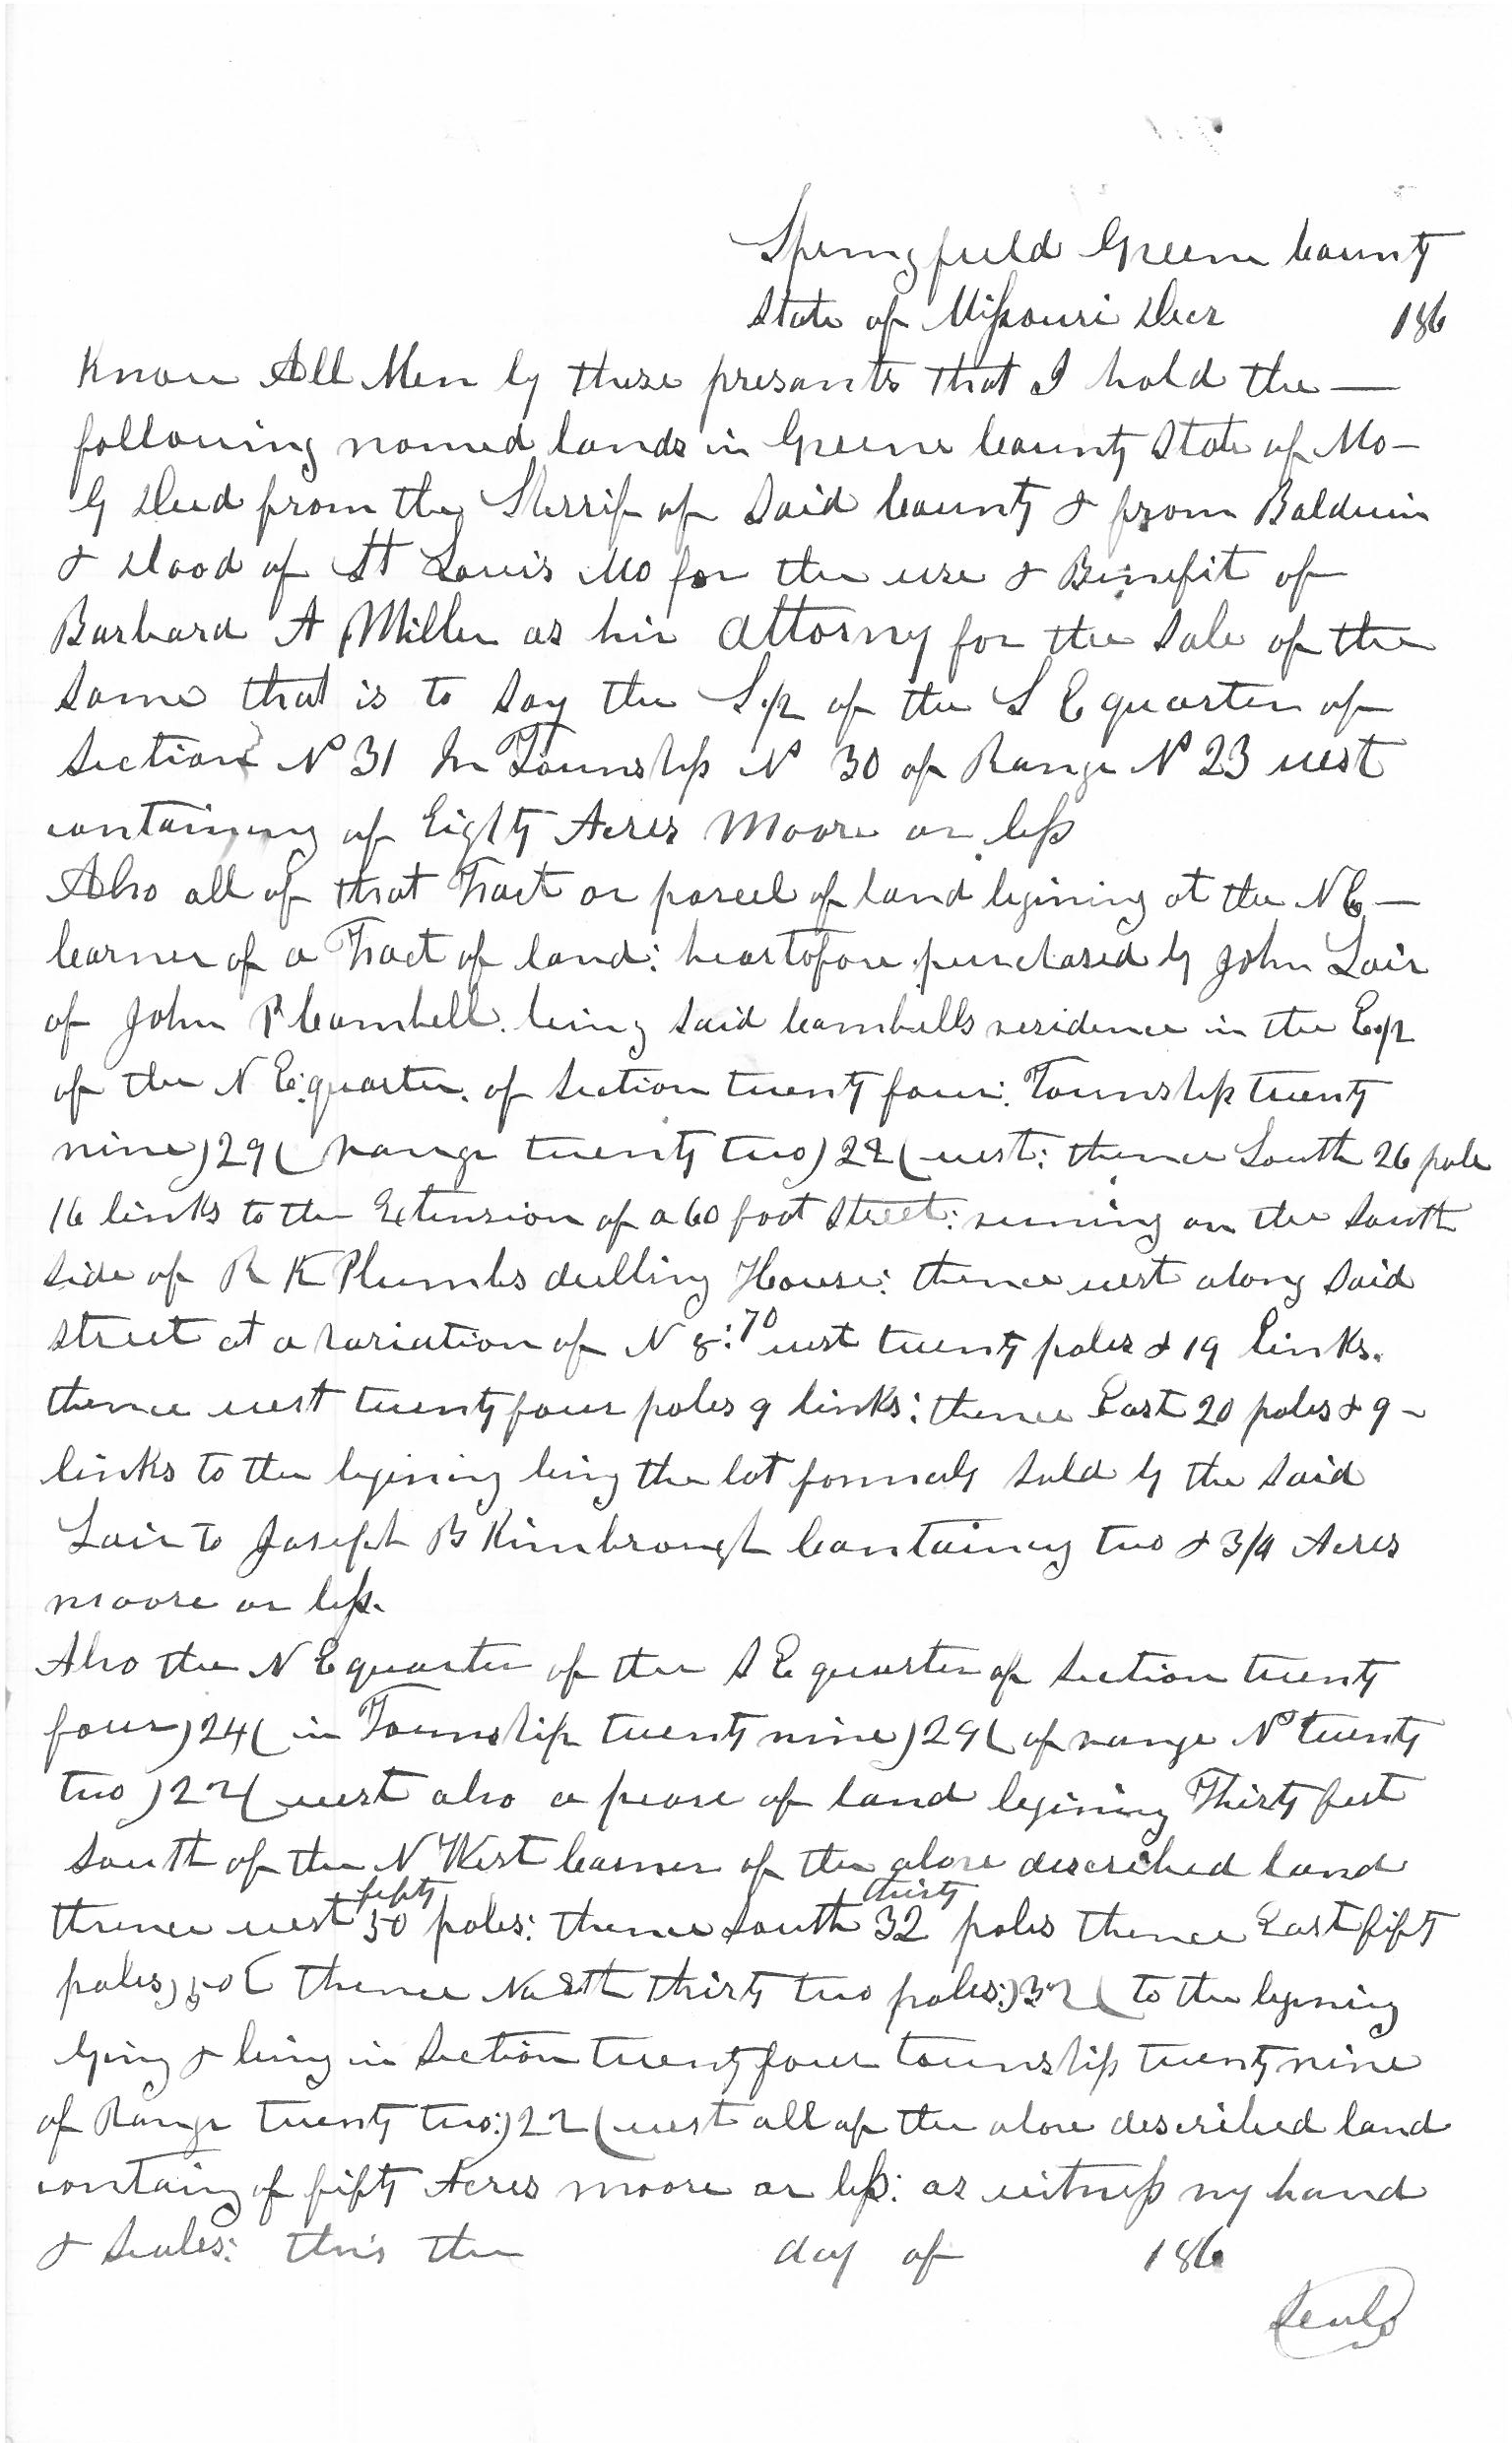 Springfield Greene County
State of Missouri Decr 186
Know All Men by these presants that I hold the —
following named lands in Greene County State of Mo —
by Deed from the Sherrif of Said County & from Baldwin
& Dood of St Louis Mo for the use & Benefit of
Barbard A Miller as hir Attorny for the Sale of the
Same that is to Say the of the S E quarter of
Section No 31 In Township No 30 of Range No 23 west
containing of Eighty Acres Moore or less
Also all of that Tract or parcel of land begining at the N E —
Corner of a Tract of land: heartofore purchased by John Lair
of John P Cambell. being Said Cambells residence in the
of the N E quarter. of Section twenty four: Township twenty
nine)29( range twenty two)22( west: thence South 26 pole
16 links to the Extension of a 60 foot Street: runing on the South
Side of R K Plumbs dwlling House: thence west along Said
Street at a variation of N 8:70 west twenty poles & 19 links.
thence west twenty four poles 9 links: thence East 20 poles & 9 -
links to the begining being the lot formaly Sold by the Said
Lair to Joseph B Kimbrough Containing two & 3/4 Acres
moore or less.
Also the N E quarter of the S E quarter of Section twenty
four)24( in Township twenty nine)29( of range No twenty
two)22( west also a pease of land begining Thirty feet
South of the N West Corner of the above described land
thence west fifty 50 poles: thence South thirty 32 poles thence East fifty
poles)50( thence North thirty two poles:)32( to the begining
lying & being in Section twenty four township twenty nine
of Range twenty two:)22( west all of the above described land
containg of fifty Acres moore or less: as witness my hand
& Seales: this the day of 186
Seals